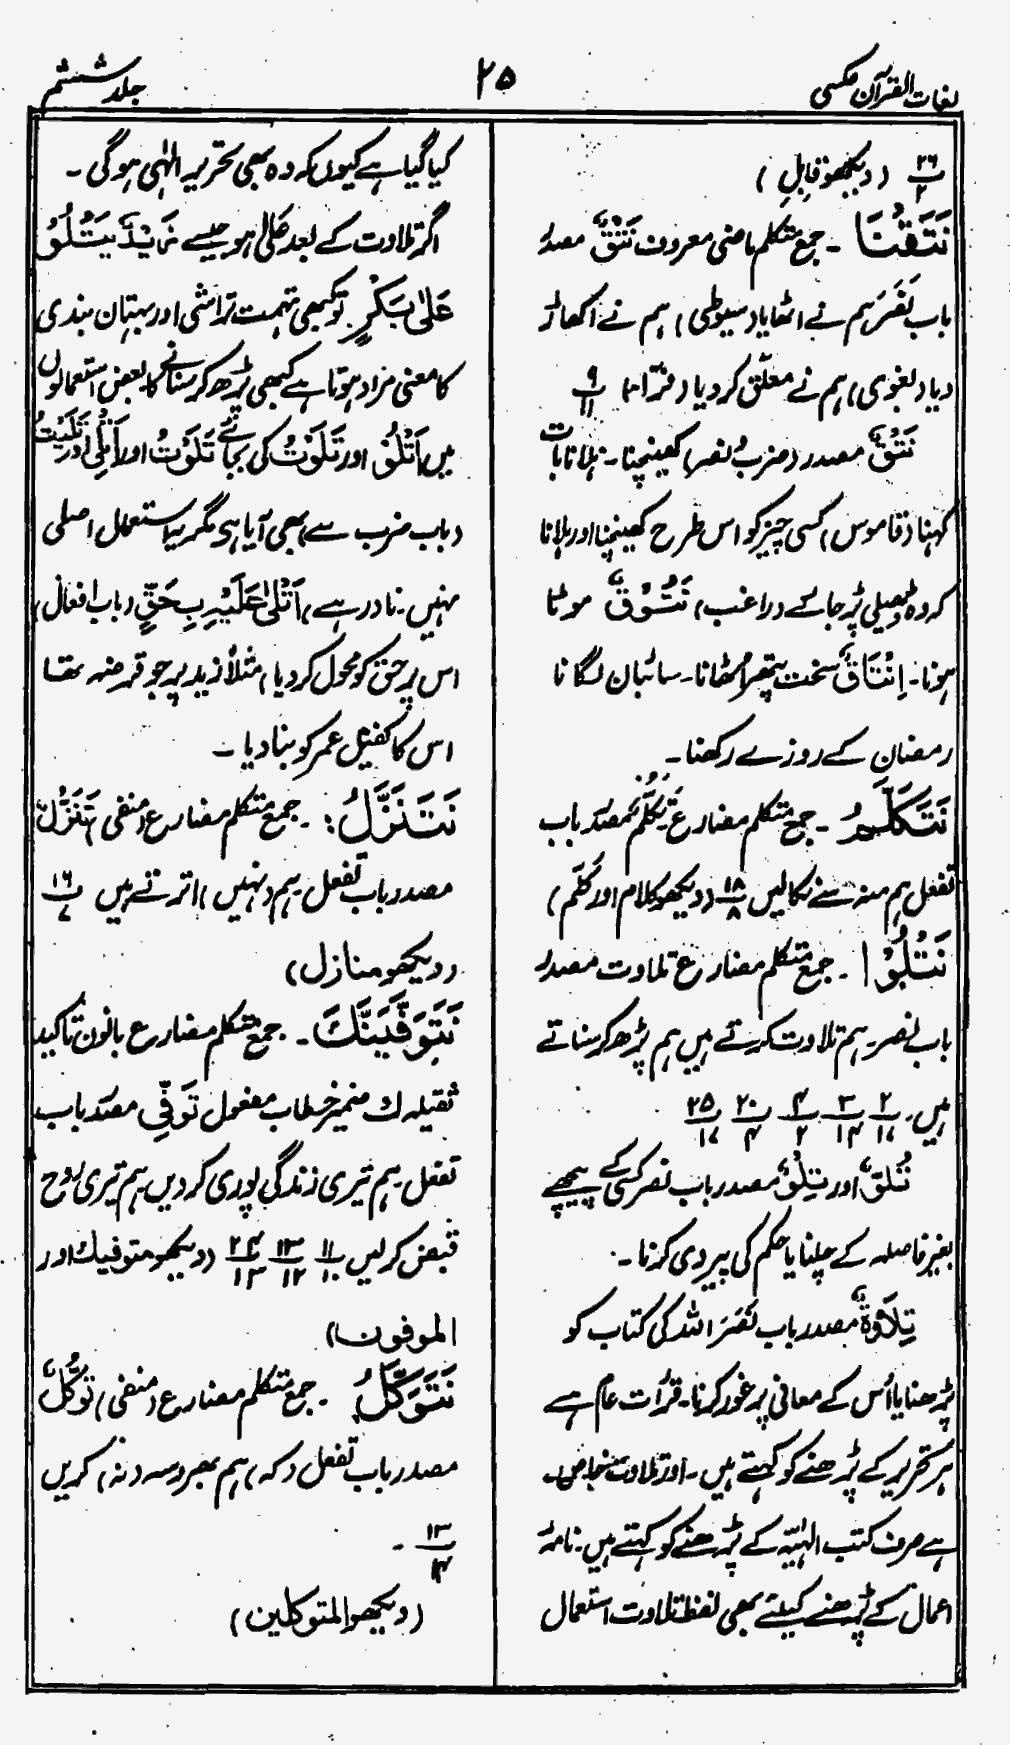 لغات القرآن عکسی
۲۵
جلد ششم
۲۶/۲ (دیکھو قابِلِ)
نَتَقْنَا ۔ جمع متکلم ماضی معروف نَتْقٌ مصدر
باب نَصَرَ ہم نے اٹھایا (سیوطی) ہم نے اکھاڑ
دیا (بغوی) ہم نے معلّق کردیا (فرّاء) ۹/۱۱
نَتْقٌ مصدر (ضربُ نصر) کھینچنا ۔ ہلانا بات
کہنا (قاموس) کسی چیز کو اس طرح کھینچنا اور ہلانا
کہ وہ ڈھیلی پڑ جائے (راغب) نُتُوْقٌ موٹا
ہونا ۔ اِنْتَاقٌ سخت پتھر اٹھانا ۔ سائبان لگانا
رمضان کے روزے رکھنا ۔
نَتَكَلَّمُ ۔ جمع متکلم مضارع تَكَلُّمٌ مصدر باب
تفعل ہم منہ سے نکالیں ۱۸/۸ (دیکھو کلام اور کَلَّمَ)
نَتْلُوْا ۔ جمع متکلم مضارع تلاوت مصدر
باب نصر ۔ ہم تلاوت کرتے ہیں ہم پڑھ کر سناتے
ہیں ۲/۱۷ ۳/۱۴ ۴/۲ ۲۰/۴ ۲۵/۱۷
تُلُوٌّ اور تِلْوٌ مصدر باب نصر کسی کے پیچھے
بغیر فاصلہ کے چلنا یا حکم کی پیروی کرنا ۔
تِلَاوَةٌ مصدر باب نَصَرَ اللہ کی کتاب کو
پڑھنا یا اُس کے معانی پر غور کرنا ۔ قرأت عام ہے
ہر تحریر کے پڑھنے کو کہتے ہیں ۔ اور تلاوت خاص
ہے صرف کتب الہٰیّہ کے پڑھنے کو کہتے ہیں ۔ نامۂ
اعمال کے پڑھنے کیلئے بھی لفظ تلاوت استعمال
کیا گیا ہے کیوں کہ وہ بھی تحریر الہٰی ہوگی ۔
اگر تلاوت کے بعد عَلیٰ ہو جیسے زَیْدٌ یَتْلُوْ
عَلیٰ بَکْرٍ تو کبھی تہمت تراشی اور بہتان بندی
کا معنی مراد ہوتا ہے کبھی پڑھ کر سنانے کا بعض استعمالوں
میں اَتْلُوْ اور تَلَوْتُ کی بجائے تَلَوْتُ اور اَتْلِیْ اور تَلَیْتُ
(باب ضرب سے) بھی آیا ہی مگر یہ استعمال اصلی
نہیں ۔ نادر ہے) اَتْلیٰ عَلَیْہِ بِحَقٍّ (باب افعال)
اس پر حق کو محول کردیا) مثلاً زید پر جو قرضہ تھا
اس کا کفیل عمر کو بنا دیا ۔
نَتَنَزَّلُ ۔ جمع متکلم مضارع (منفی) تَنَزُّلٌ
مصدر باب تفعل ۔ ہم (نہیں) اترتے ہیں ۱۶/۷
(دیکھو منازل)
نَتَوَفَّيَنَّكَ ۔ جمع متکلم مضارع بانون تاکید
ثقیلہ ك ضمیر خطاب مفعول تَوَفِّی مصدر باب
تفعل ہم تیری زندگی پوری کردیں ہم تیری روح
قبض کرلیں ۱۱/۱۰ ۱۳/۱۲ ۲۴/۱۳ (دیکھو متوفیك اور
الموفون)
نَتَوَكَّلُ ۔ جمع متکلم مضارع (منفی) تَوَكُّلٌ
مصدر باب تفعل (کہ) ہم بھروسہ (نہ) کریں
۱۳/۱۴ ۔
(دیکھو المتوکلین)